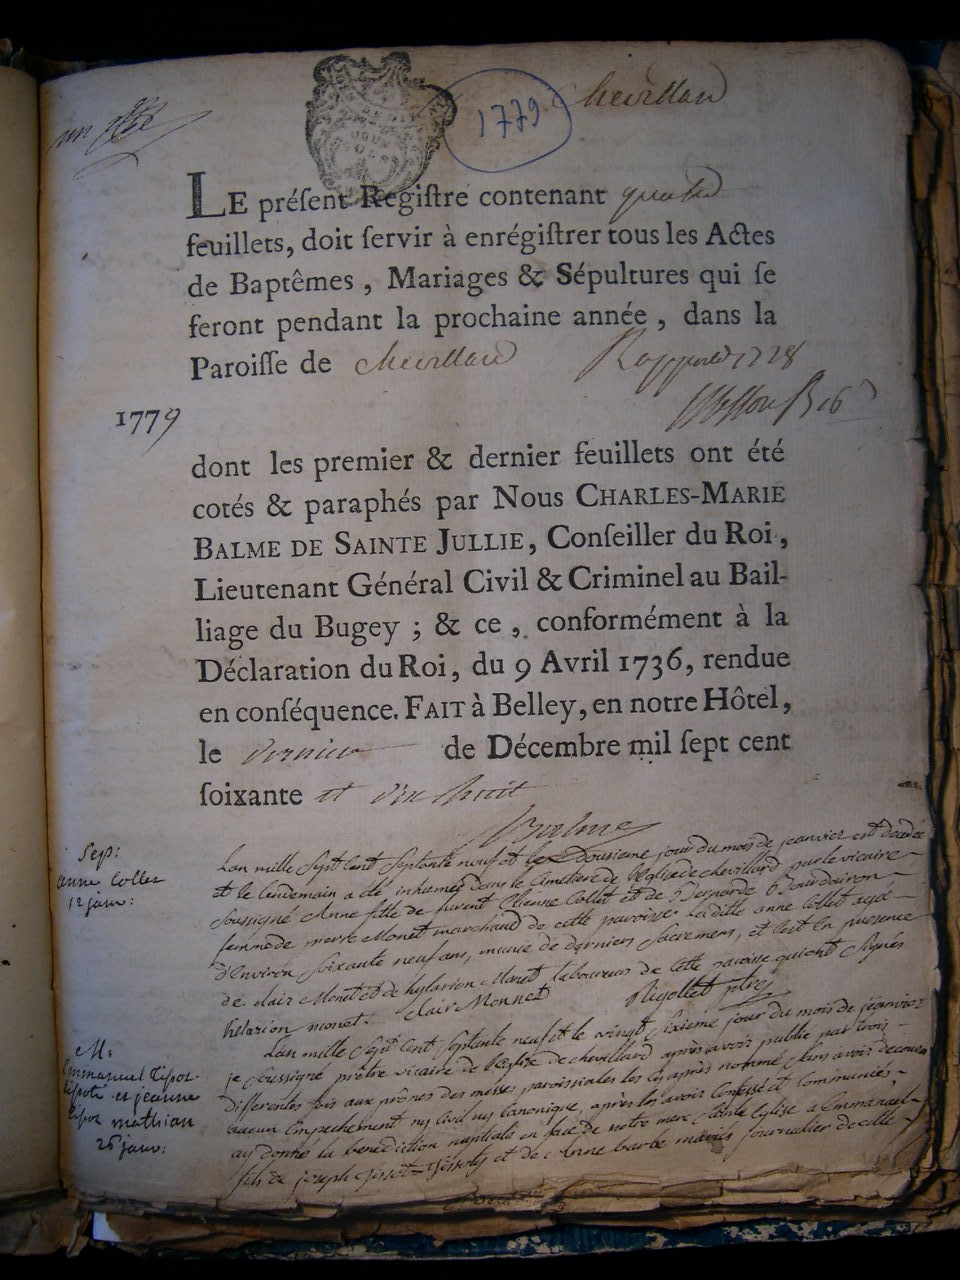 1779. Chevillard
LE préſent Regiſtre contenant quatre
feuillets, doit ſervir à enrégiſtrer tous les Actes
de Baptêmes, Mariages & Sépultures qui ſe
feront pendant la prochaine année, dans la
Paroiſſe de chevillard
1779
dont les premier & dernier feuillets ont été
cotés & paraphés par Nous CHARLES-MARIE
BALME DE SAINTE JULLIE, Conſeiller du Roi,
Lieutenant Général Civil & Criminel au Bail-
liage du Bugey ; & ce, conformément à la
Déclaration du Roi, du 9 Avril 1736, rendue
en conſéquence. FAIT à Belley, en notre Hôtel,
le dernier de Décembre mil ſept cent
ſoixante et dix huit
Balme
Sep:
anne Collet
12 janv:
L'an mille Sept Cent Septante neuf et le Douzieme jour du mois de janvier est decedée
et le lendemain a été inhumée dans le Cimetiere de l'Eglise de chevillard par le vicaire
soussigné Anne fille de Etienne Collet et de
femme de pierre Monet marchand de cette paroisse la ditte anne Collet agée
d'environ soixante neuf ans, munie de derniers Sacremens, et c'est en presence
de clair Monet et de hylarion Monet laboureurs de cette paroisse qui ont signés
hilarion monet. Clair Monnet Rigollet ptre
M.
Emmanuel
et jeanne
mathian
26 janv:
L'an mille Sept Cent Septante neuf et le vingt Sixieme jour du mois de janvier
je soussigné prêtre vicaire de l'Eglise de chevillard après avoir publié par trois
differentes fois aux prônes des messes paroissiales les cy après nommés sans avoir decouvert
aucun Empechement ny Civil ny Canonique, après les avoir confessé et communiés
ay donné la benediction nuptiale en face de notre mere Sainte Eglise a Emmanuel
fils de joseph et de Anne mariés journalier de